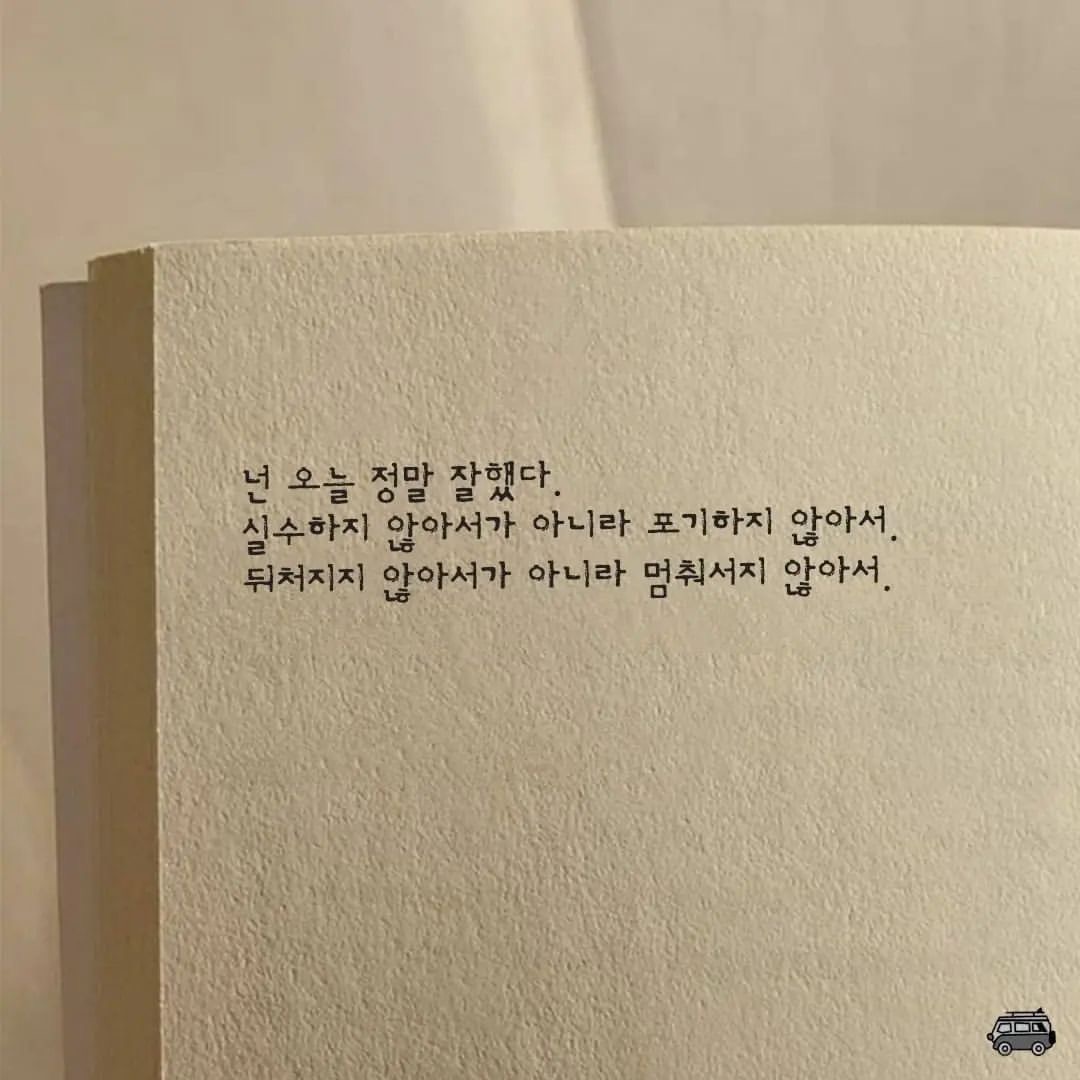 넌 오늘 정말 잘했다.
실수하지 않아서가 아니라 포기하지 않아서.
뒤처지지 않아서가 아니라 멈춰서지 않아서.